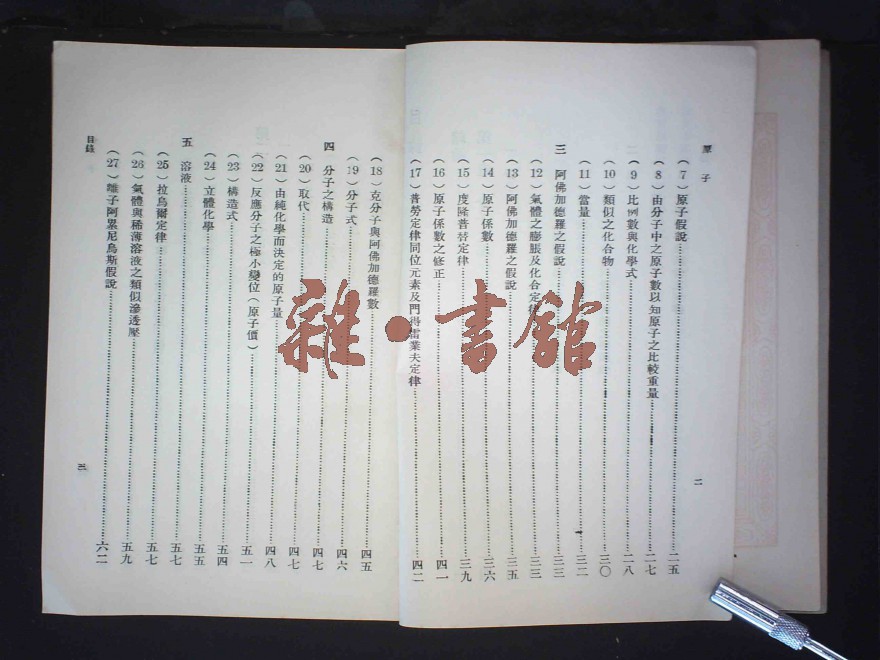 原子
（7）原子假說……二五
（8）由分子中之原子數以知原子之比較重量……二七
（9）比例數與化學式……二八
（10）類似之化合物……三〇
（11）當量……三二
三　阿佛加德羅之假說……三三
（12）氣體之膨脹及化合定律……三三
（13）阿佛加德羅之假說……三五
（14）原子係數……三六
（15）度隆普替定律……三九
（16）原子係數之修正……四一
（17）普勞定律同位元素及門得雷業夫定律……四二
二
（18）克分子與阿佛加德羅數……四五
（19）分子式……四六
四　分子之構造……四七
（20）取代……四七
（21）由純化學而決定的原子量……四八
（22）反應分子之極小變位（原子價）……五一
（23）構造式……五四
（24）立體化學……五五
五　溶液……五七
（25）拉烏爾定律……五七
（26）氣體與稀薄溶液之類似滲透壓……五九
（27）離子阿累尼烏斯假說……六二
目錄
三
雜·書館